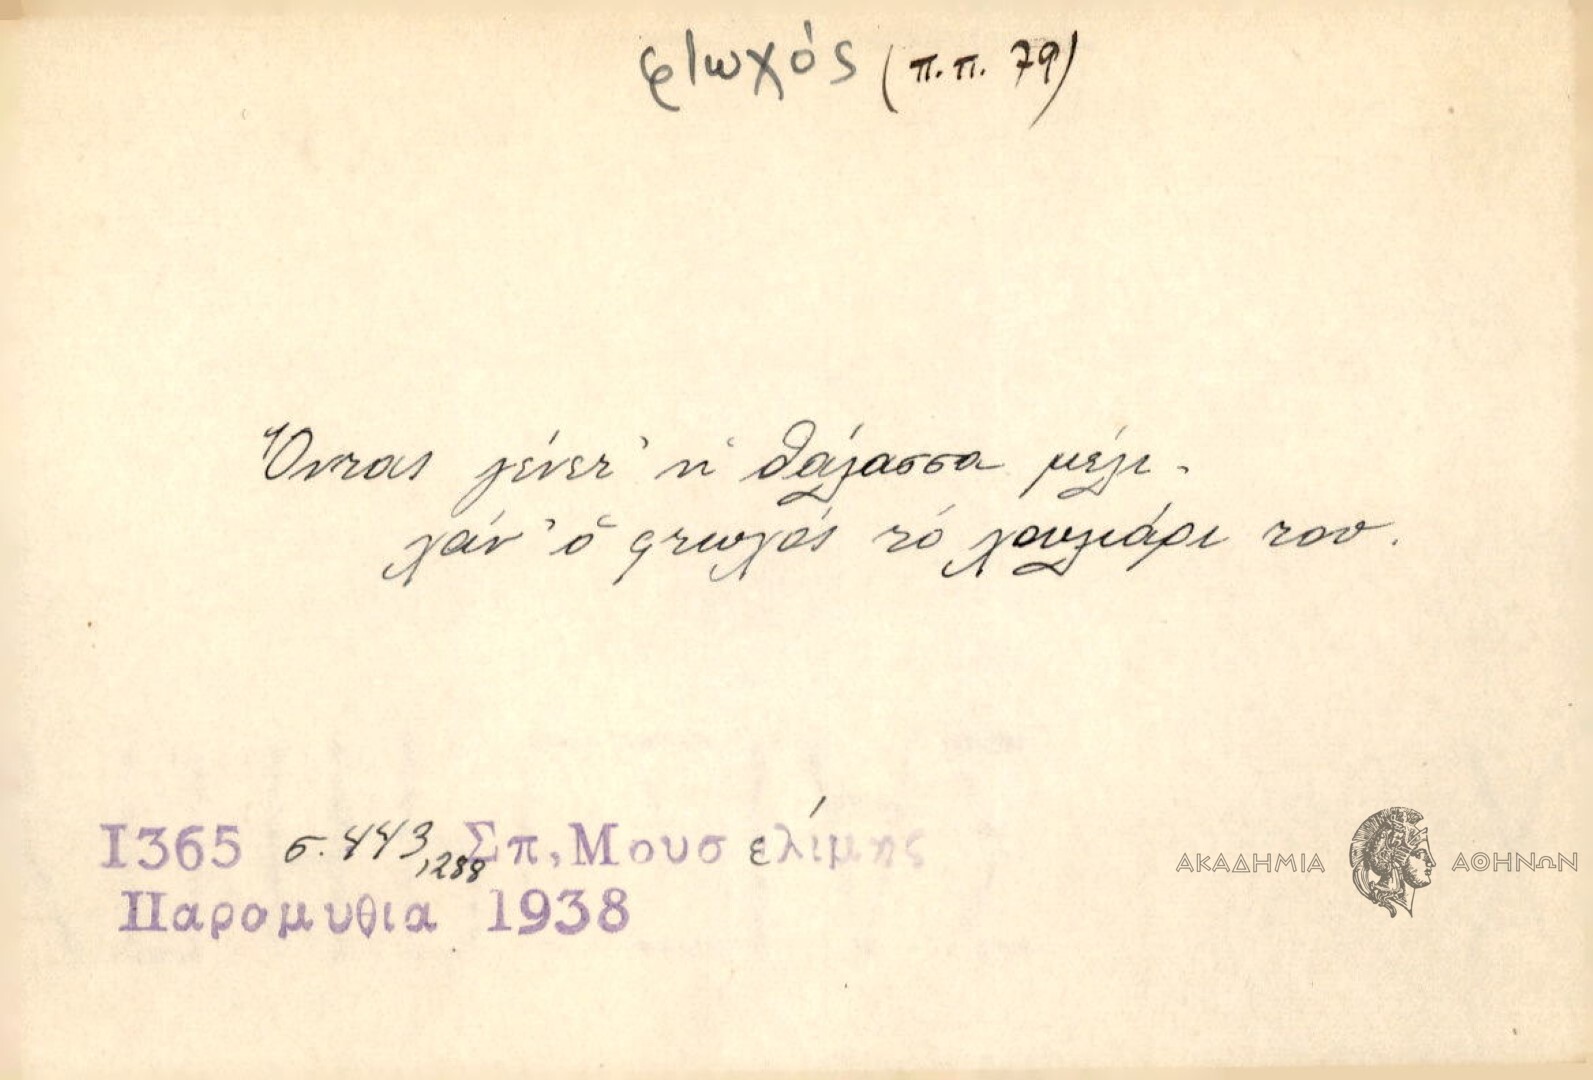 φτωχός (π.π. 79)
Όντας γένετ' η θάλασσα μέλι.
χάν' ὁ φτωχός τό χουλιάρι του.
Ι365 σ. 443,288 Σπ, Μουσελίμης
Παραμυθια 1938
ΑΚΑΔΗΜΙΑ ΑΘΗΝΩΝ